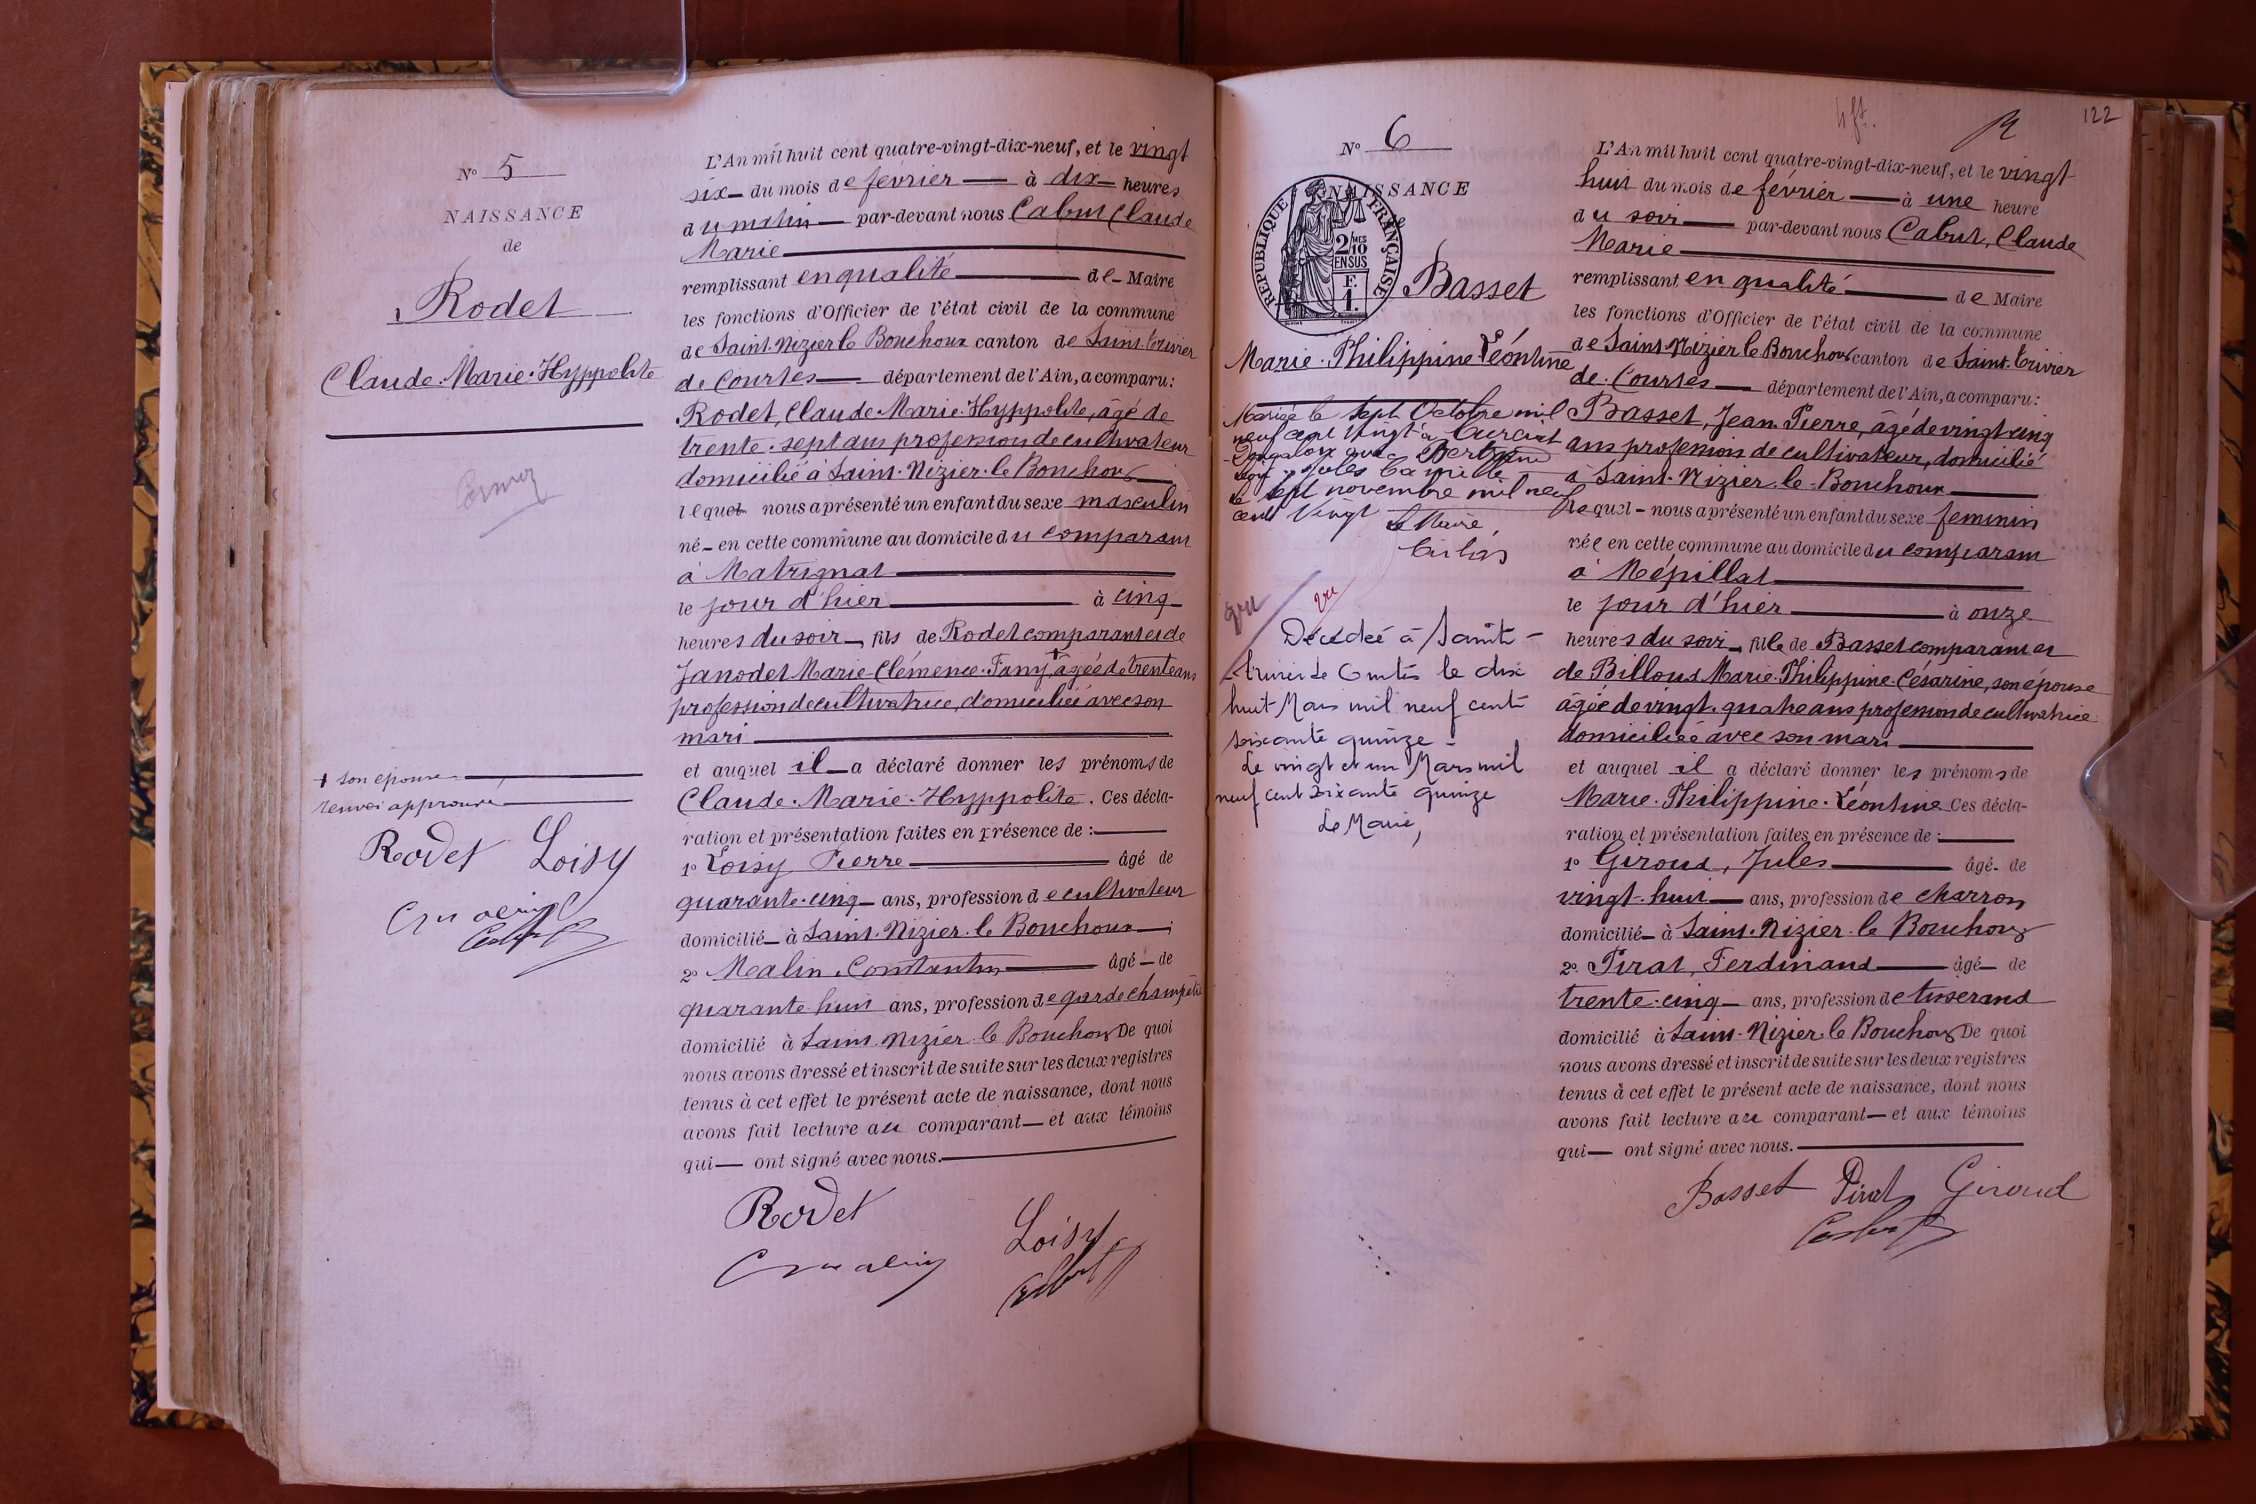 N° 5
NAISSANCE
de
Rodet
Claude-Marie-Hyppolite
+ son épouse
renvoi approuvé
Rodet Loisy
L'An mil huit cent quatre-vingt-dix-neuf, et le vingt
six du mois de février à dix heures
du matin par-devant nous Cabut Claude
Marie
remplissant en qualité de Maire
les fonctions d'Officier de l'état civil de la commune
de Saint-Nizier le Bouchoux canton de Saint-Trivier
de Courtes département de l'Ain, a comparu :
Rodet, Claude-Marie-Hyppolite, âgé de
trente-sept ans profession de cultivateur
domicilié à Saint-Nizier-le-Bouchoux
lequel nous a présenté un enfant du sexe masculin
né en cette commune au domicile du comparant
à Matrignat
le jour d'hier à cinq
heures du soir, fils de Rodet comparant et de
Janodet Marie-Clémence-Fany + âgée de trente ans
profession de cultivatrice, domiciliée avec son
mari
et auquel il a déclaré donner les prénoms de
Claude-Marie-Hyppolite. Ces décla-
ration et présentation faites en présence de :
1° Loisy Pierre âgé de
quarante-cinq ans, profession de cultivateur
domicilié à Saint-Nizier-le Bouchoux ;
2° Malin, Constantin âgé de
quarante huit ans, profession de garde champêtre
domicilié à Saint-Nizier-le Bouchoux De quoi
nous avons dressé et inscrit de suite sur les deux registres
tenus à cet effet le présent acte de naissance, dont nous
avons fait lecture au comparant et aux témoins
qui ont signé avec nous.
Rodet
Loisy
N° 6
NAISSANCE
de
REPUBLIQUE FRANÇAISE
2/10 MES
EN SUS
F.
1.
Basset
Marie-Philippine-Léontine
Mariée le sept Octobre mil
neuf cent vingt à Curciat
Dongalon avec
Jules Camille
le sept novembre mil neuf
cent vingt
Le Maire,
vu
vu
Décédée à Saint-
Trivier de Courtes le dix
huit Mars mil neuf cent
soixante quinze -
Le vingt et un Mars mil
neuf cent soixante quinze
Le Maire,
122
L'An mil huit cent quatre-vingt-dix-neuf, et le vingt
huit du mois de février à une heure
du soir par-devant nous Cabut, Claude
Marie
remplissant en qualité de Maire
les fonctions d'Officier de l'état civil de la commune
de Saint-Nizier le Bouchoux canton de Saint-Trivier
de Courtes département de l'Ain, a comparu :
Basset, Jean-Pierre, âgé de vingt-cinq
ans profession de cultivateur, domicilié
à Saint-Nizier-le-Bouchoux
lequel nous a présenté un enfant du sexe feminin
née en cette commune au domicile du comparant
à Népillat
le jour d'hier à onze
heures du soir, fille de Basset comparant et
de Billoud Marie-Philippine-Césarine, son épouse
âgée de vingt-quatre ans profession de cultivatrice
domiciliée avec son mari
et auquel il a déclaré donner les prénoms de
Marie-Philippine-Léontine Ces décla-
ration et présentation faites en présence de :
1° Giroud, Jules âgé de
vingt-huit ans, profession de charron
domicilié à Saint-Nizier-le Bouchoux
2° Pirat, Ferdinand âgé de
trente-cinq ans, profession de tisserand
domicilié à Saint-Nizier le Bouchoux De quoi
nous avons dressé et inscrit de suite sur les deux registres
tenus à cet effet le présent acte de naissance, dont nous
avons fait lecture au comparant et aux témoins
qui ont signé avec nous.
Basset Pirat Giroud